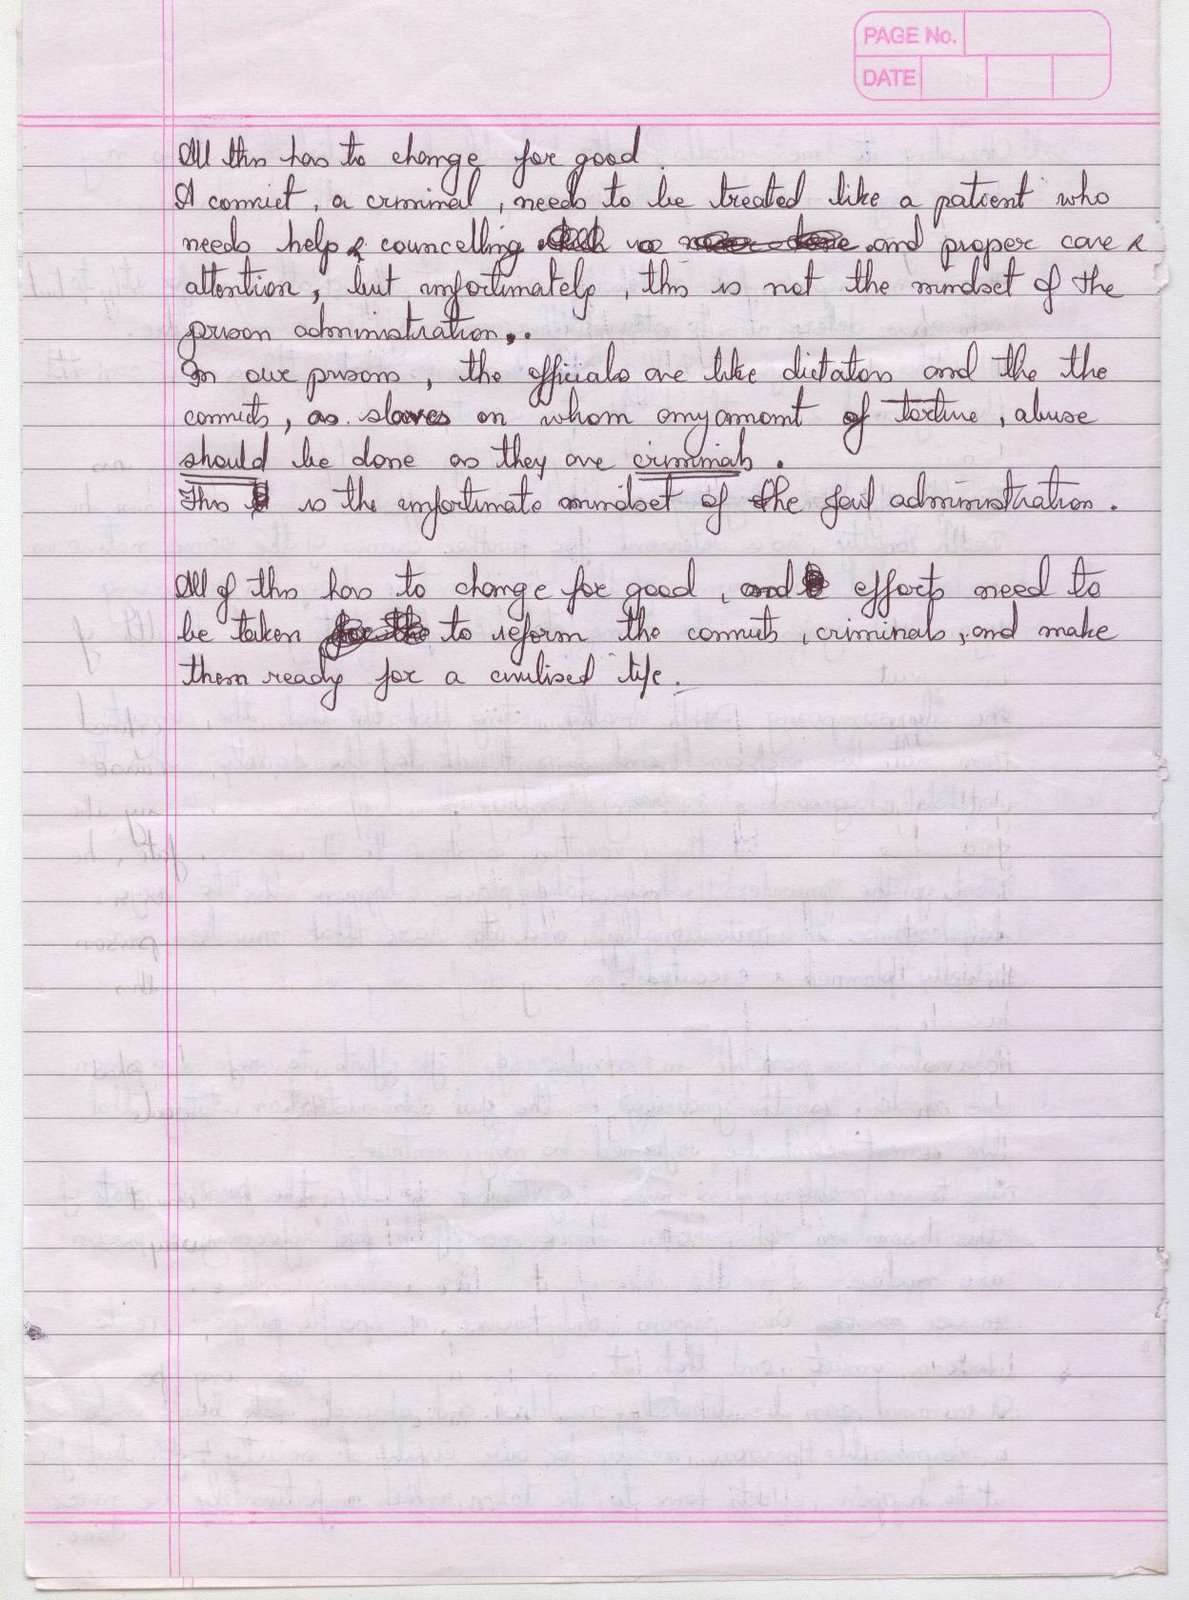 PAGE No.
DATE
All this has to change for good.
A convict, a criminal, needs to be treated like a patient who
needs help & councelling and proper care &
attention, but unfortunately, this is not the mindset of the
prison administration..
In our prisons, the officials are like dictators and the the
convicts, as slaves on whom any amont of torture, abuse
should be done as they are criminals.
This is the unfortunate mindset of the jail administration.
All of this has to change for good, and efforts need to
be taken to reform the convicts, criminals, and make
them ready for a civilised life.